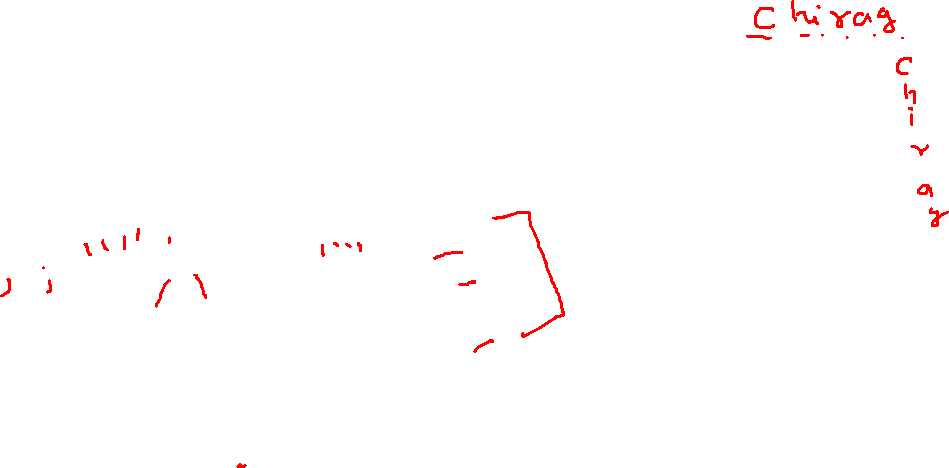 Chirag
C
h
i
r
a
g